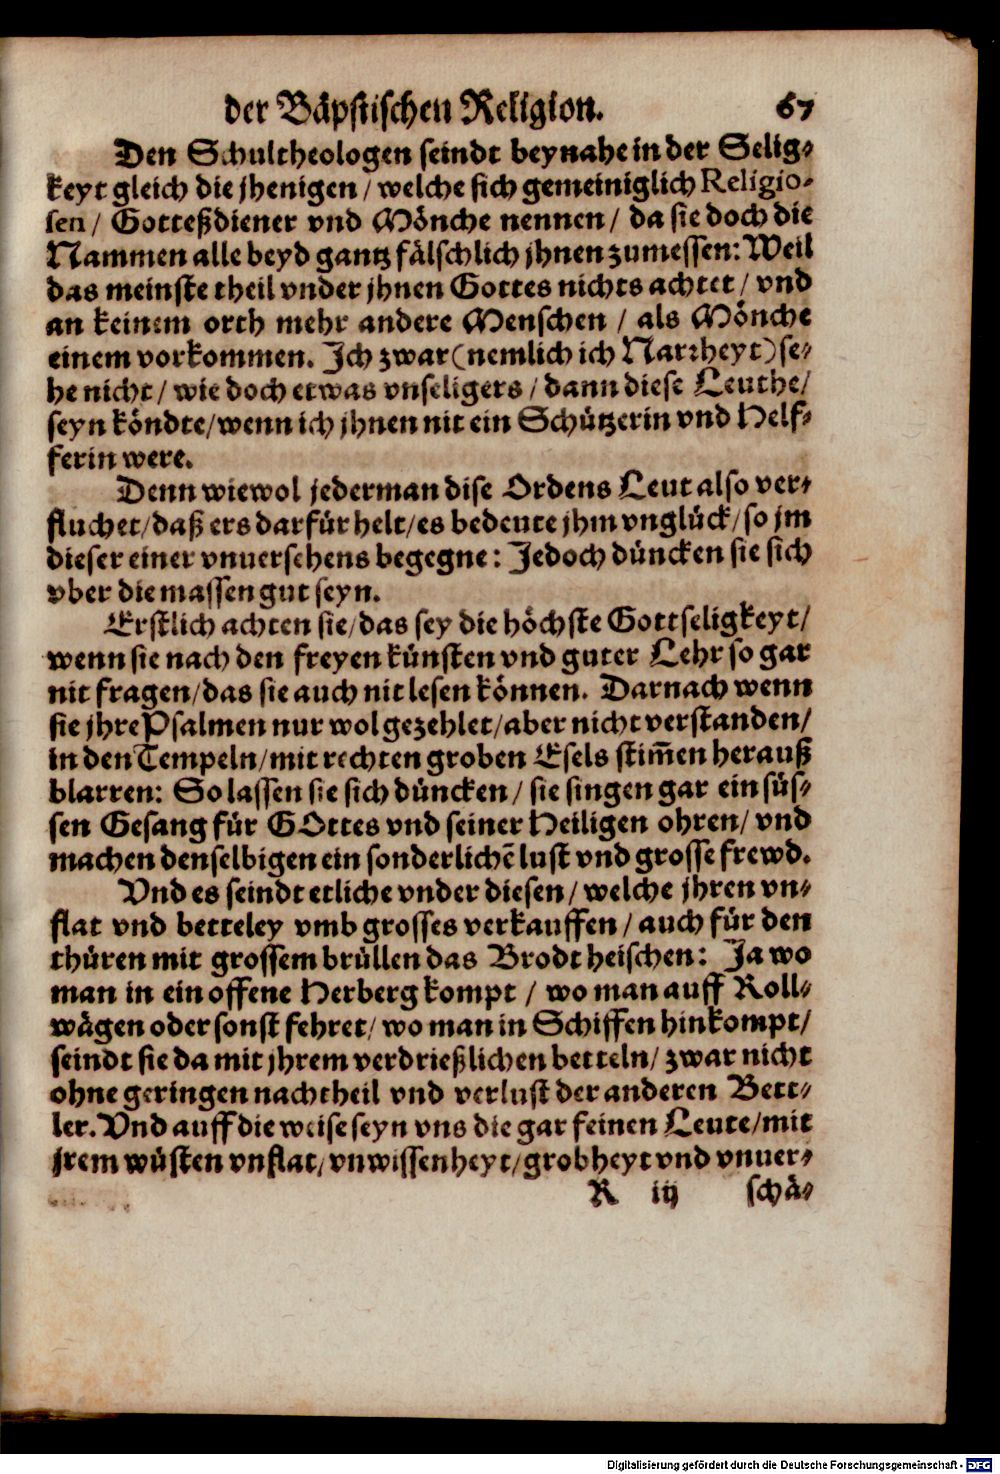 der Bäpstischen Religion. 67
Den Schultheologen seindt beynahe in der Selig⸗
keyt gleich die jhenigen / welche sich gemeiniglich Religio-
sen / Gotteßdiener vnd Mönche nennen / da sie doch die
Nammen alle beyd gantz fälschlich jhnen zumessen: Weil
das meinste theil vnder jhnen Gottes nichts achtet / vnd
an keinem orth mehr andere Menschen / als Mönche
einem vorkommen. Ich zwar (nemlich ich Narrheyt) se⸗
he nicht / wie doch etwas vnseligers / dann diese Leuthe /
seyn köndte / wenn ich jhnen nit ein Schützerin vnd Helf⸗
ferin were.
Denn wiewol jederman dise Ordens Leut also ver⸗
fluchet / daß ers darfür helt / es bedeute jhm vnglück / so jm
dieser einer vnuersehens begegne: Jedoch düncken sie sich
vber die massen gut seyn.
Erstlich achten sie / das sey die höchste Gottseligkeyt /
wenn sie nach den freyen künsten vnd guter Lehr so gar
nit fragen / das sie auch nit lesen können. Darnach wenn
sie jhre Psalmen nur wol gezehlet / aber nicht verstanden /
in den Tempeln / mit rechten groben Esels stim̃en herauß
blarren: So lassen sie sich düncken / sie singen gar ein süs⸗
sen Gesang für GOttes vnd seiner Heiligen ohren / vnd
machen denselbigen ein sonderlichẽ lust vnd grosse frewd.
Vnd es seindt etliche vnder diesen / welche jhren vn⸗
flat vnd betteley vmb grosses verkauffen / auch für den
thüren mit grossem brüllen das Brodt heischen: Ja wo
man in ein offene Herberg kompt / wo man auff Roll⸗
wägen oder sonst fehret / wo man in Schiffen hinkompt /
seindt sie da mit jhrem verdrießlichen betteln / zwar nicht
ohne geringen nachtheil vnd verlust der anderen Bett⸗
ler. Vnd auff die weise seyn vns die gar feinen Leute / mit
jrem wüsten vnflat / vnwissenheyt / grobheyt vnd vnuer⸗
R iij schä⸗
Digitalisierung gefördert durch die Deutsche Forschungsgemeinschaft - DFG